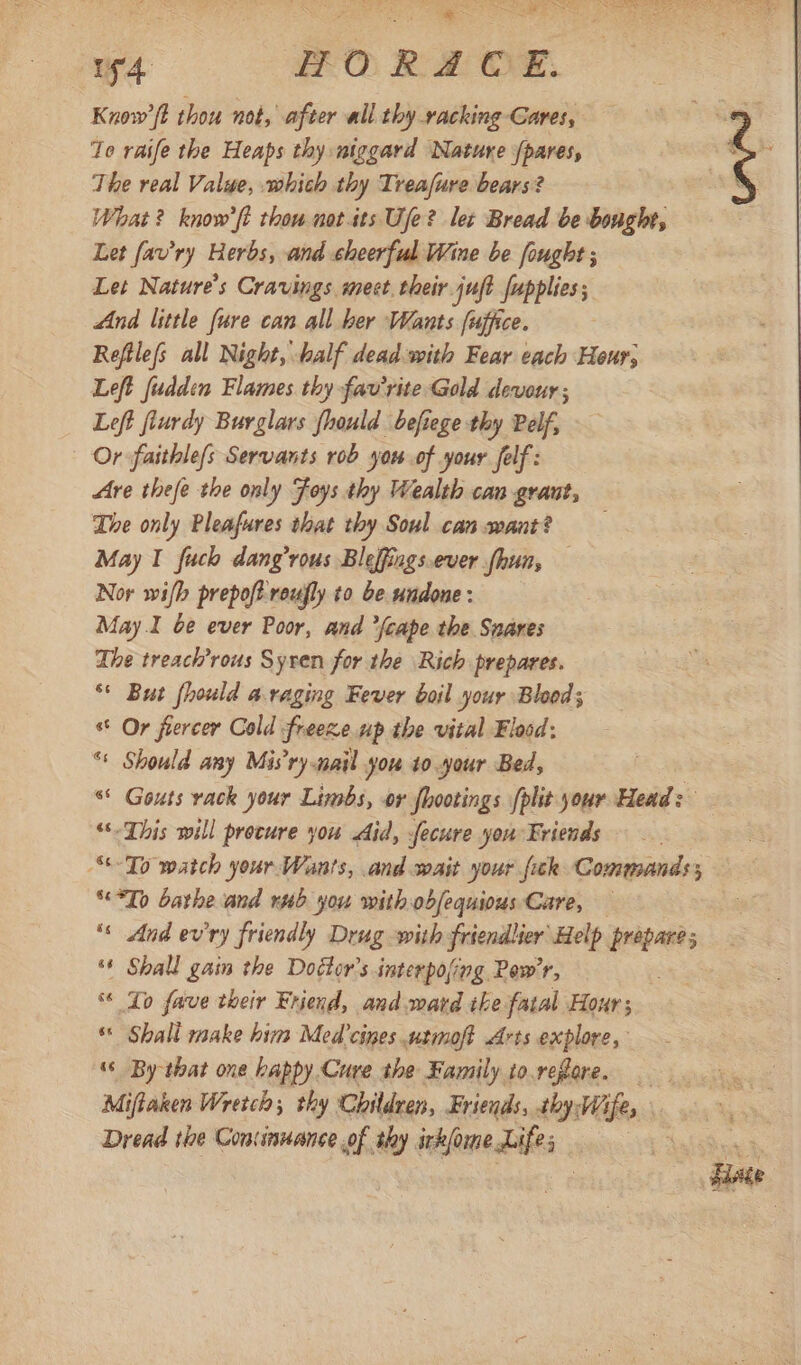 154 HORACE.
Know'ſt thou not, after all thy racking Cares,
To raiſe the Heaps thy niggard Nature ſpares,
The real Value, which thy Treaſure bears?
What? know'ſt thou not its Uſe? let Bread be bought,
Let ſav'ry Herbs, and cheerful Wine be ſought;
Let Nature's Cravings meet their juſt ſupplies;
And little ſure can all her Wants ſuffice.
Reſtleſs all Night, half dead with Fear each Hour,
Leſt ſudden Flames thy fav'rite Gold devour;
Leſt ſturdy Burglars ſhould beſiege thy Pelf,
Or faithleſs Servants rob you of your ſelf:
Are theſe the only Joys thy Wealth can grant,
The only Pleaſures that thy Soul can want?
May I ſuch dang'rous Bleſſings ever ſhun,
Nor wiſh prepoſt'rouſly to be undone:
May I be ever Poor, and 'ſcape the Snares
The treach'rous Syren for the Rich prepares.
“ But ſhould a raging Fever boil your Blood;
“ Or fiercer Cold freeze up the vital Flood;
“ Should any Mis'ry nail you to your Bed,
“ Gouts rack your Limbs, or ſhootings ſplit your Head:
“ This will procure you Aid, ſecure you Friends
“ To watch your Wants, and wait your ſick Commands;
“ To bathe and rub you with obſequious Care,
“ And ev'ry friendly Drug with friendlier Help prepare;
“ Shall gain the Doctor's interpoſing Pow'r,
“ To ſave their Friend, and ward the fatal Hour;
“ Shall make him Med'cines utmoſt Arts explore,
“ By that one happy Cure the Family to reſtore.
Miſtaken Wretch; thy Children, Friends, thy Wife,
Dread the Continuance of thy irkſome Life;
Hate